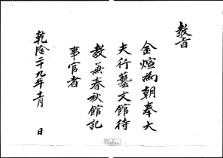 教旨
金煊為朝奉大
夫行藝文館待
教兼春秋館記
事官者
乾隆二十九年二月 日